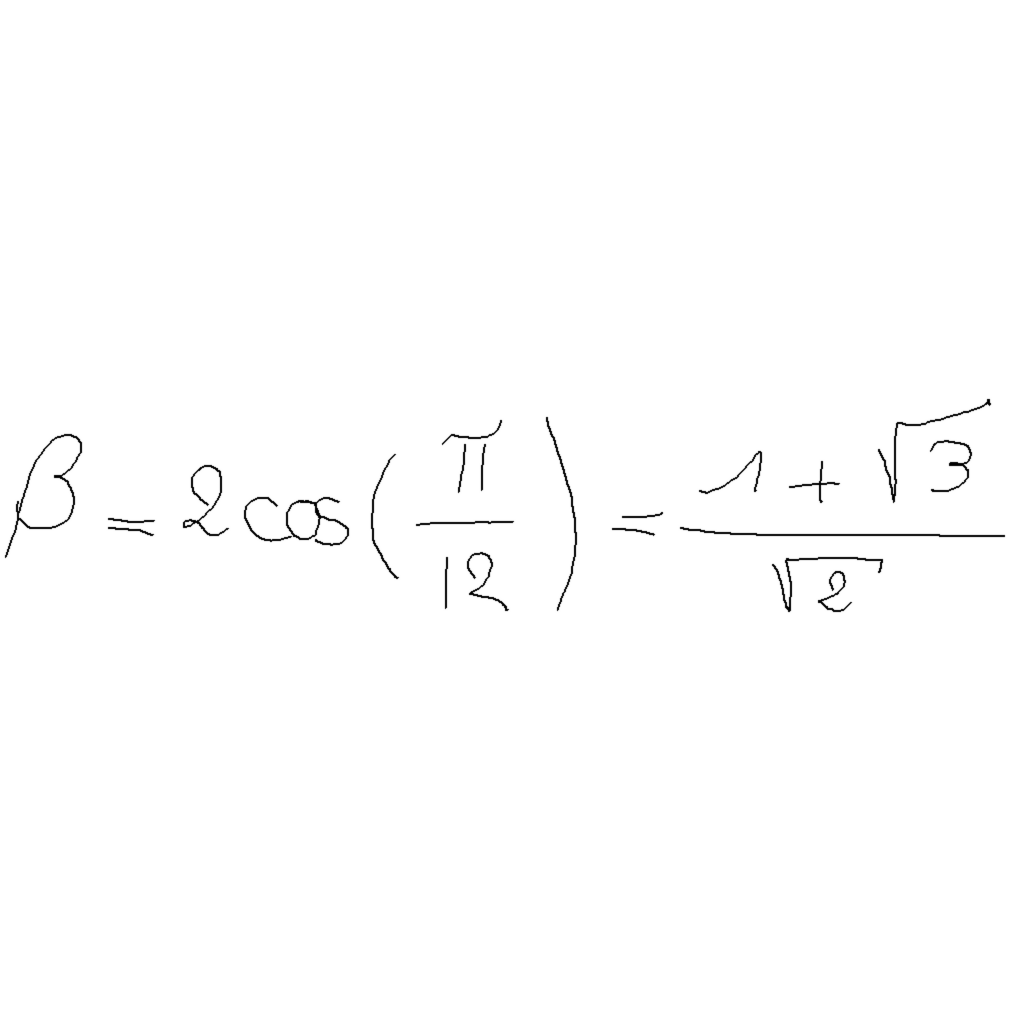 β = 2cos(π/12) = (1 + √3)/√2